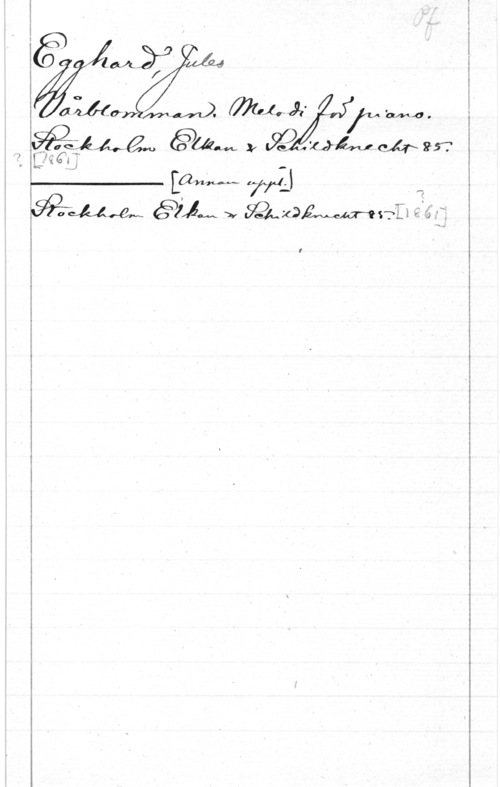 Pf
Egghard, Jules
Vårblomman. Melodi för piano.
Stockholm Elkan & Schildknecht 85.
? [1861]
[Annan uppl.]
Stockholm Elkan & Schildknecht 85. [1861] ?